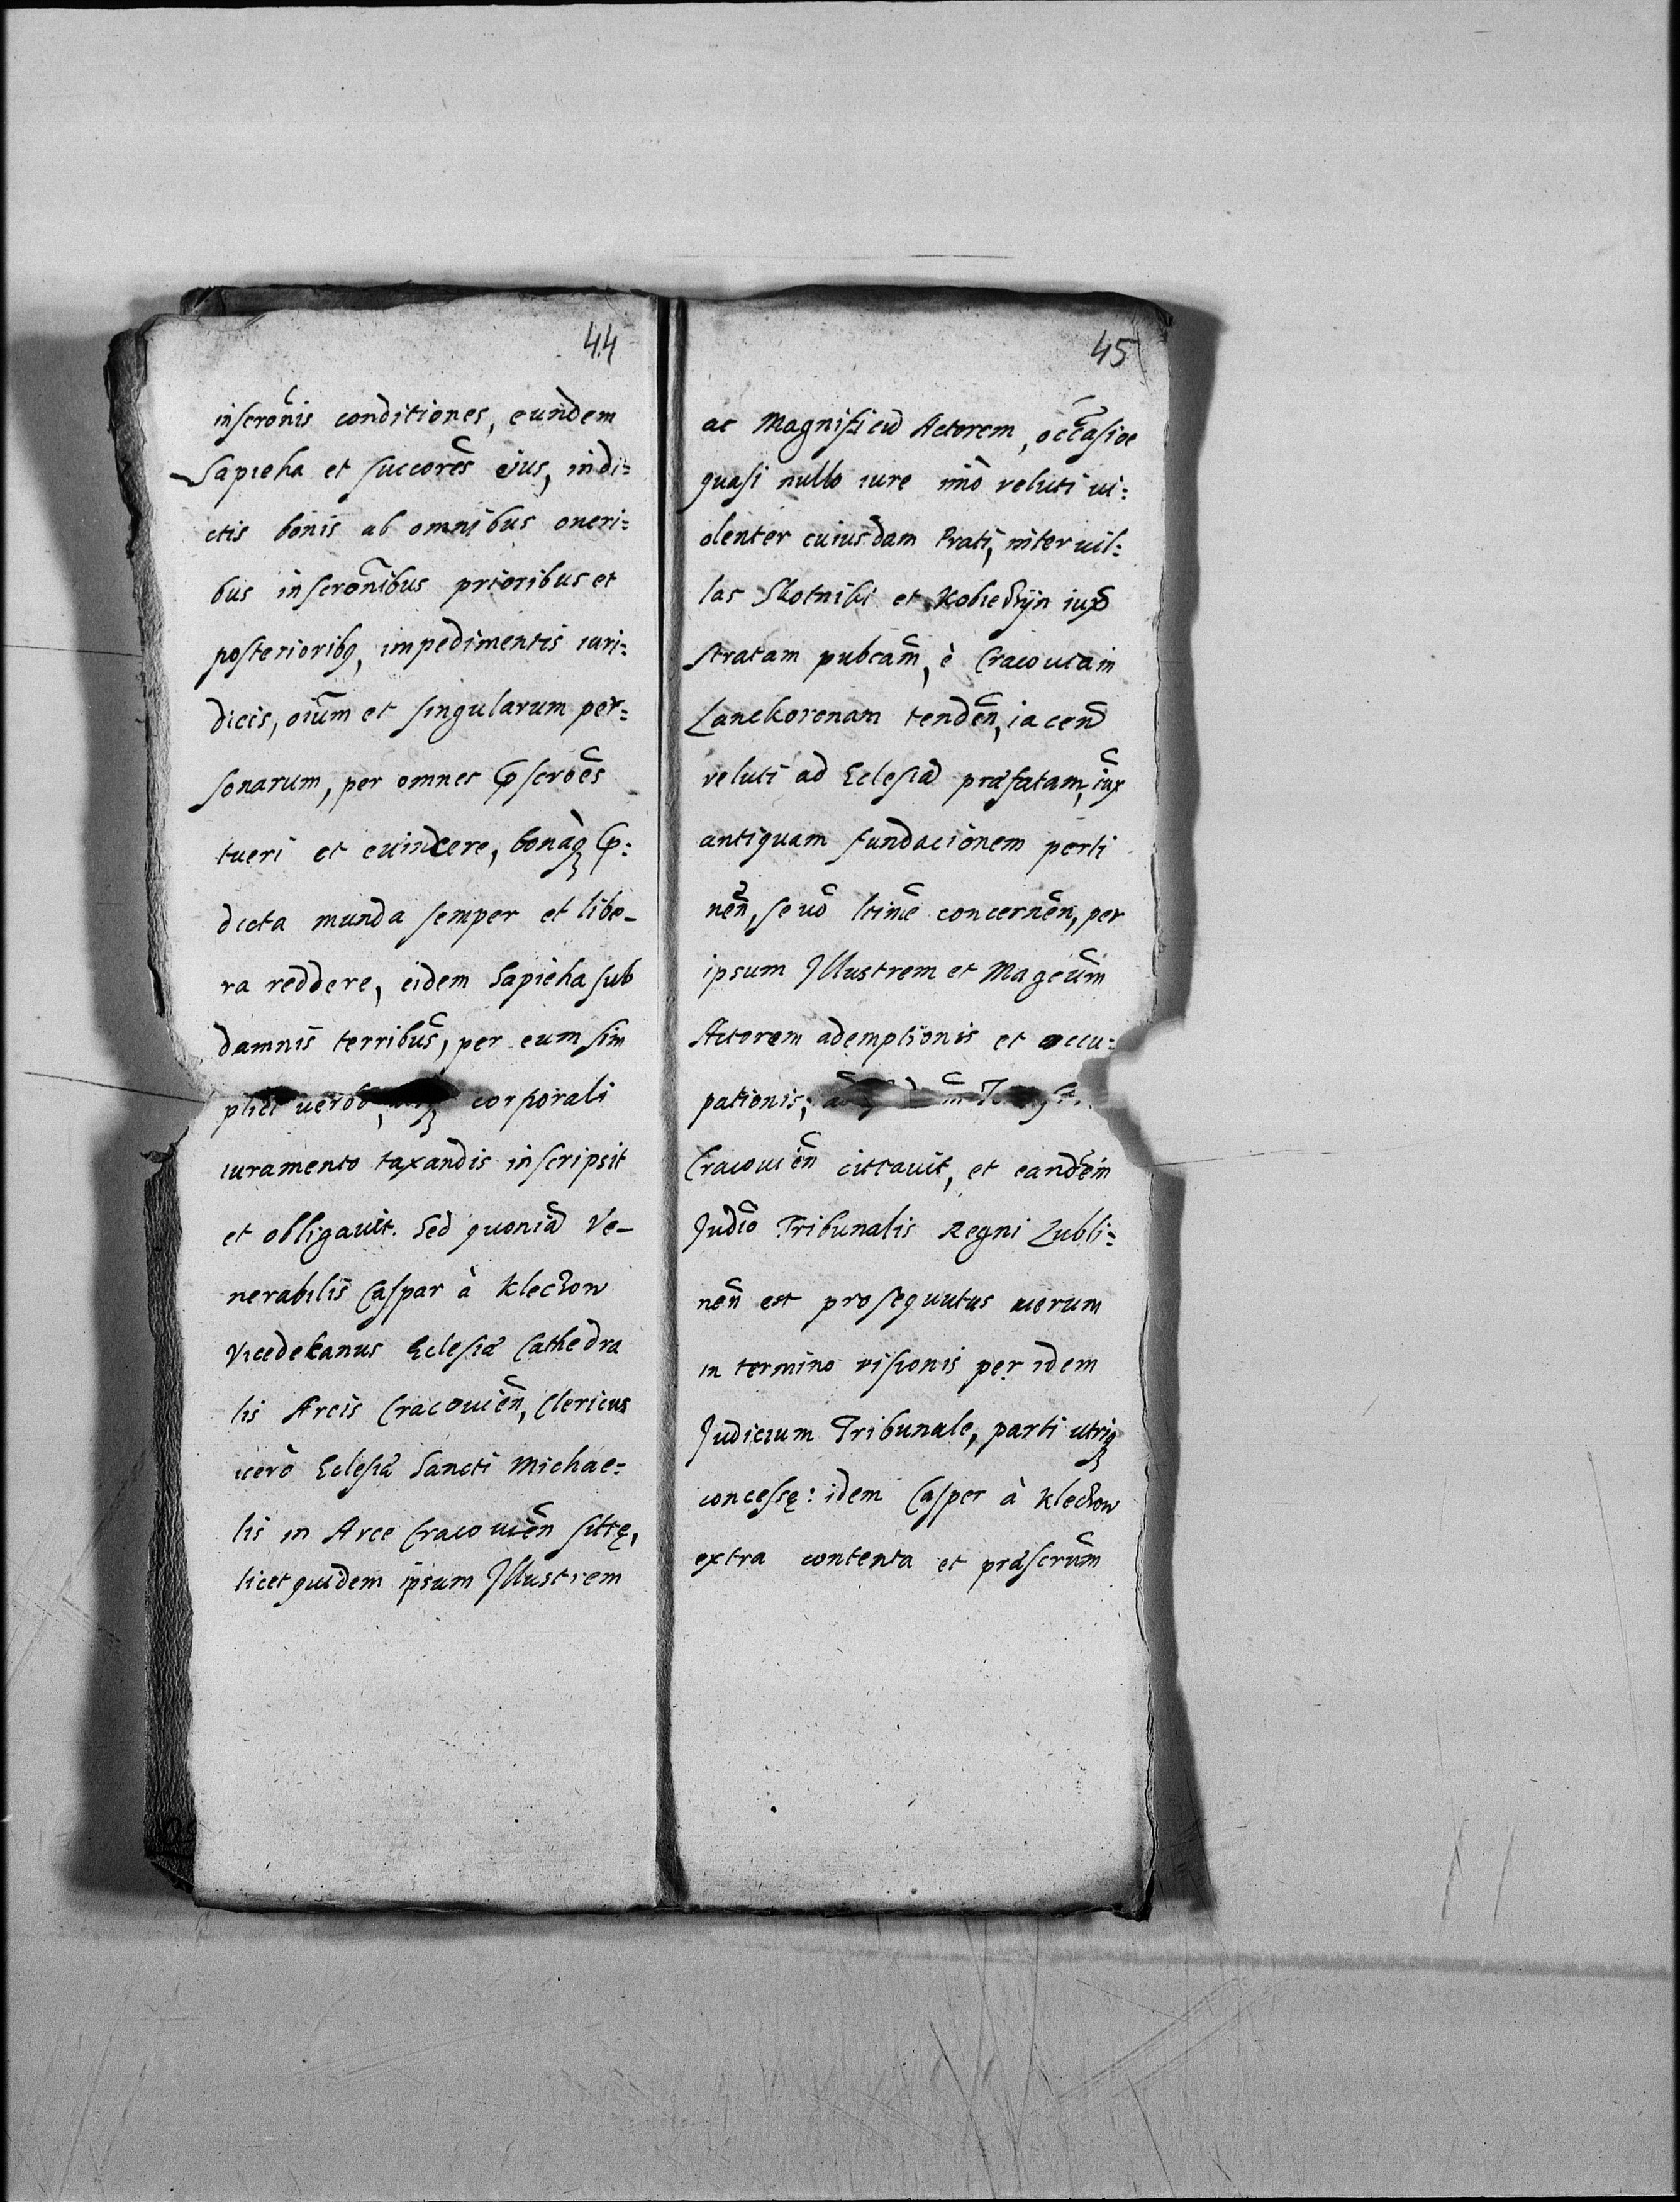 44
inscronis conditiones, eundem
Sapieha et succores eius, in di=
ctis bonis ab omnibus oneri=
bus inscronibus prioribus et
posterioribq, impedimentis iuri=
dicis, oium et singularum per=
sonarum, per omnes pscroes
tueri et euincere, bonaq p=
dicta munda semper et libe-
ra reddere, eidem Sapieha sub
damnis terribus, per eum sim
plici uerbo, corporali
iuramento taxandis inscripsit
et obligauit. Sed quoniã Ve-
nerabilis Caspar à Kleczow
Vicedekanus Eclesiæ Cathedra
lis Arcis Cracouien, Clericus
uerò Eclesiæ Sancti Michae=
lis in Arce Cracouien sittę,
licet quidem ipsum Illustrem
45
ac Magnificũ Actorem, occasioe
quasi nullo iure imò veluti ui=
olenter cuiusdam Prati, inter uil=
las Skotniki et Kobierzÿn iuxõ
stratam pubcam, è Cracouia in
Lanckoronam tenden, iacenõ
veluti ad Eclesiã præfatam, iux
antiquam fundacionem perti
nen, seuõ ltime concernen, per
ipsum Illustrem et Mageum
Actorem ademptionis et occu=
pationis,
Cracouien cittauit, et eandem
Judio Tribunalis Regni Lubli=
nen est prosequutus uerum
in termino visionis per idem
Judicium Tribunale, parti utriq
concessę: idem Casper à Kleczow
extra contenta et præscrum